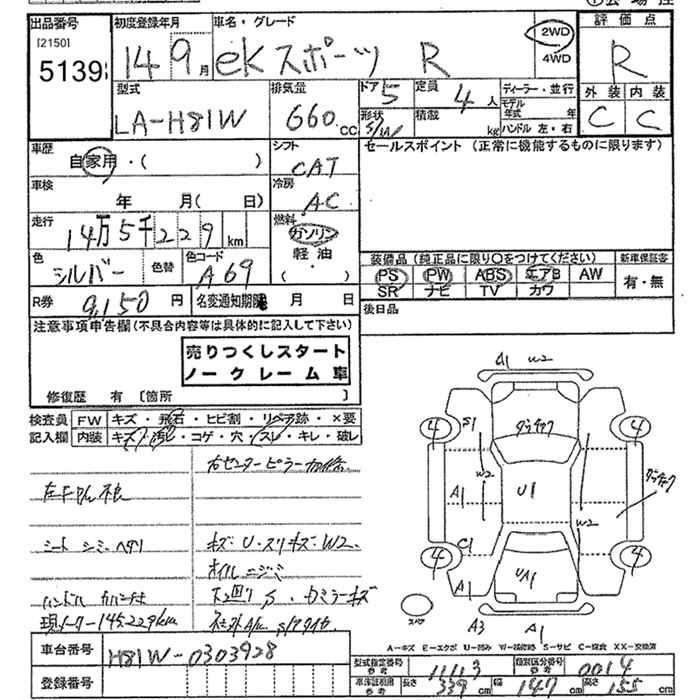 出品番号 初度登録年月 車名・グレード 評価点
[2150] 5139 14 9月 eKスポーツ R 2WD 4WD R
型式 排気量 ドア 5 定員 4人 ディーラー・並行 外装 内装
LA-H81W 660cc 形状 S/W 積載 kg モデル年式 年 ハンドル 左・右 C C
車歴 シフト セールスポイント (正常に機能するものに限ります)
自家用・( ) CAT
車検 冷房
年 月( 日) AC
走行 燃料
14万5千229km ガソリン
色 色替 色コード 軽油
シルバー A69 ・( )
装備品 (純正品に限り○をつけてください) 新車保証書
PS PW ABS エアB AW 有・無
SR ナビ TV カワ
R券 9,150円 名変通知期限 月 日 後日品
注意事項申告欄(不具合内容等は具体的に記入して下さい)
売りつくしスタート
ノークレーム車
修復歴 有 [箇所 ]
検査員 FW キズ・飛石・ヒビ割・リペア跡・×要
記入欄 内装 キズ・汚レ・コゲ・穴・スレ・キレ・破レ
右センターピラー
不良
シート シミ ヘタリ キズ U・スリキズ W2
オイルニジミ
ハンドル 下廻り S
現メーター145,229km
車台番号 H81W-0303928
登録番号
A1 W2
S1 4 4
W2
A1 U1
C1 W2
4 4
A1 UA1
A3 A1
スペア
A=キズ E=エクボ U=凹み W=補修跡 S=サビ C=腐食 XX=交換済
型式指定番号 参考 11113 類別区分番号 参考 0014
車体証明書 参考 長さ 339cm 幅 147cm 高さ 155cm